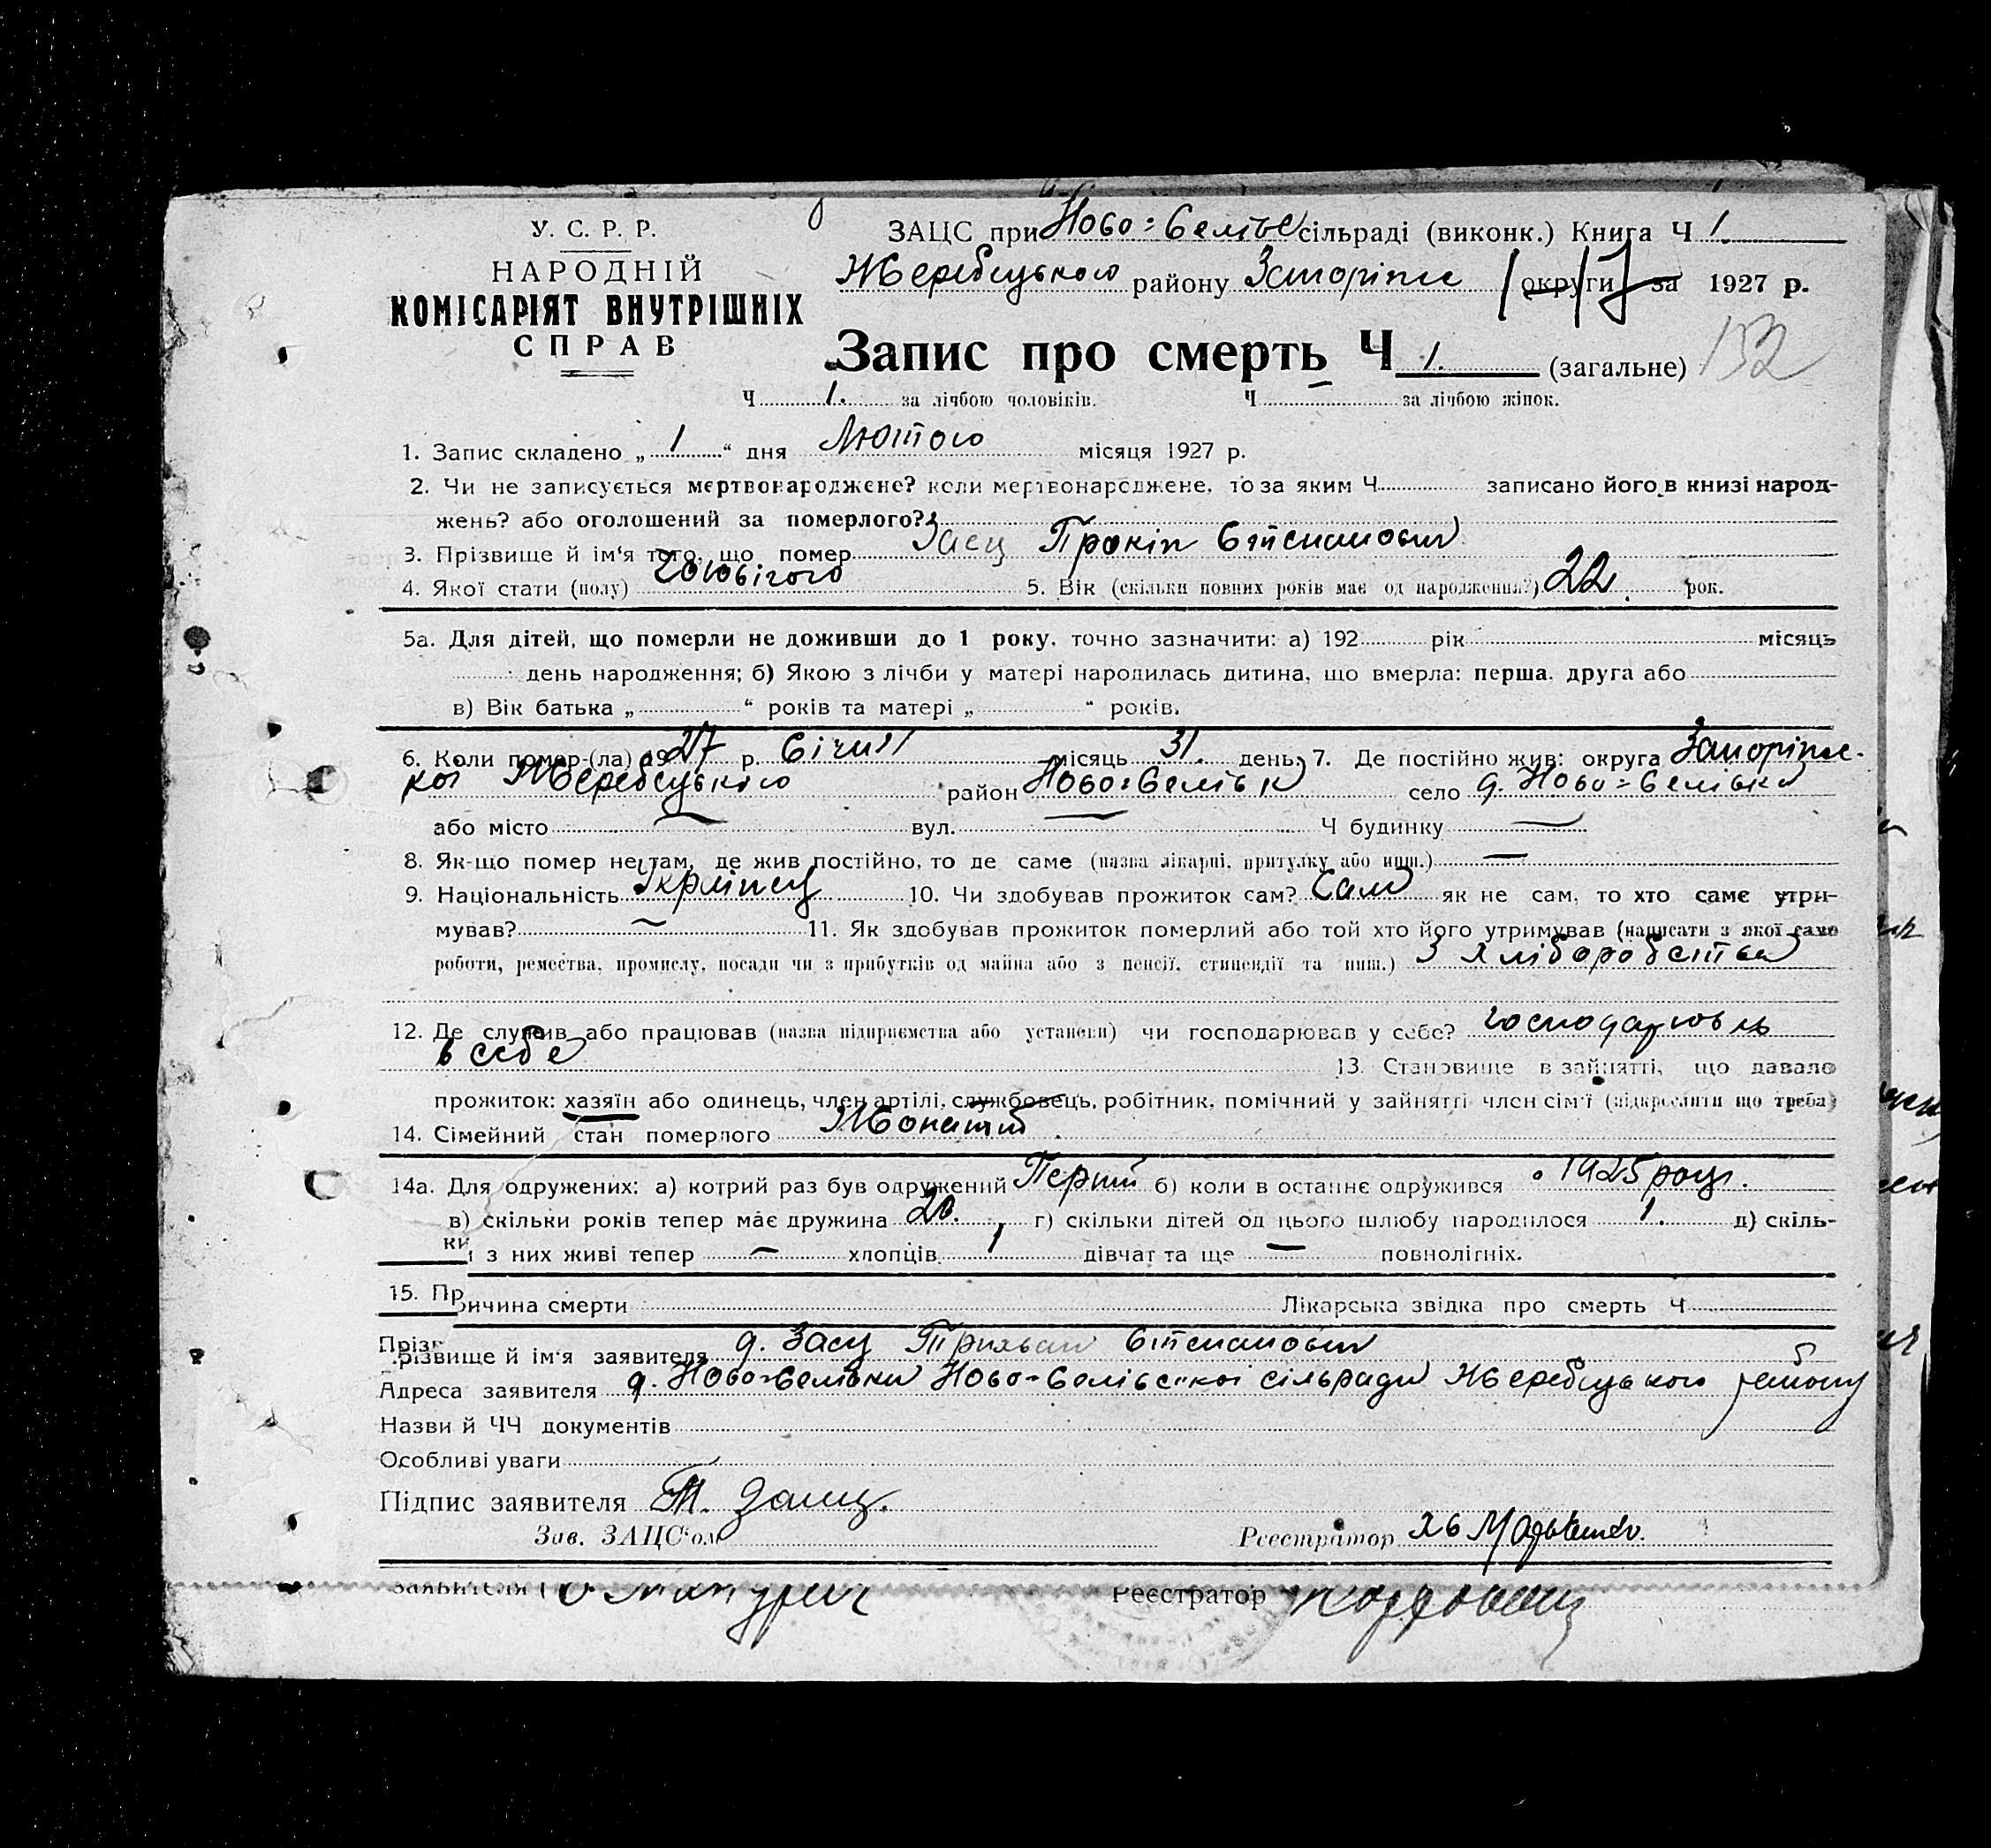 У. С. Р. Р.
НАРОДНІЙ
КОМІСАРІЯТ ВНУТРІШНІХ
СПРАВ
ЗАЦС при сільраді (виконк.) Книга Ч 1.
Жеребецького району Запоріж округи за 1927 р.
Запис про смерть Ч 1. (загальне) 132
Ч 1. за лічбою чоловіків. Ч — за лічбою жінок.
1. Запис складено „ 1 “ дня Лютого місяця 1927 р.
2. Чи не записується мертвонароджене? коли мертвонароджене, то за яким Ч записано його в книзі народ-
жень? або оголошений за померлого?
3. Прізвище й ім‘я того, що помер Заєц Прокіп Степанович
4. Якої стати (полу) 5. Вік (скільки повних років має од народження?) 22. рок.
5а. Для дітей, що померли не доживши до 1 року, точно зазначити: а) 192 рік місяць
день народження; б) Якою з лічби у матері народилась дитина, що вмерла: перша, друга або
в) Вік батька „ “ років та матері „ “ років.
6. Коли помер-(ла) 1927 р. Січня місяць 31. день; 7. Де постійно жив: округа Запоріж-
кої Жеребецького район село
або місто — вул. — Ч будинку —
8. Як-що помер не там, де жив постійно, то де саме (назва лікарні, притулку або инш.) —
9. Національність Украінец 10. Чи здобував прожиток сам? Сам як не сам, то хто саме утри-
мував? — 11. Як здобував прожиток померлий або той хто його утримував (написати з якої саме
роботи, ремества, промислу, посади чи з прибутків од майна або з пенсії, стипендії та инш.) З хліборобства
12. Де служив або працював (назва підприємства або установи) чи господарював у себе?
в себе 13. Становище в зайнятті, що давало
прожиток: хазяїн або одинець, член артілі, службовець, робітник, помічний у зайнятті член сім‘ї (підкреслити що треба)
14. Сімейний стан померлого Жонатий
14а. Для одружених: а) котрий раз був одружений б) коли в останнє одружився 1925 році.
в) скільки років тепер має дружина 20. г) скільки дітей од цього шлюбу народилося 1. д) скіль-
ки з них живі тепер — хлопців 1 дівчат та ще — повнолітніх.
15. Причина смерти Лікарська звідка про смерть Ч
Прізвище й ім‘я заявителя Степанович
Адреса заявителя сільради Жеребецького району
Назви й ЧЧ документів
Особливі уваги
Підпис заявителя
Зав. ЗАЦС‘ом Реєстратор
заявителя Реєстратор